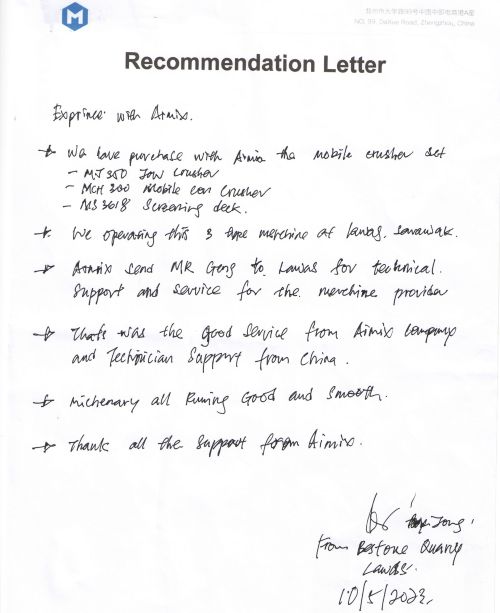 M
NO. 99, Daxue Road, Zhengzhou, China
Recommendation Letter
Exprince with Aimix.
We have purchase with Aimix the mobile crusher set
- MJ 350 Jow Crusher
- MCH 300 Mobile con Crusher
- MS 3618 Screening deck.
We operating this 3 type merchine at Lawas, Sarawak.
Aimix send MR Geng to Lawas for technical.
Support and service for the merchine provider
Thats was the Good Service from Aimix Company
and Technician Support from China.
Michenary all Runing Good and Smooth.
Thank all the Support from Aimix.
From Bestone Quarry
Lawas.
10/5/2023,